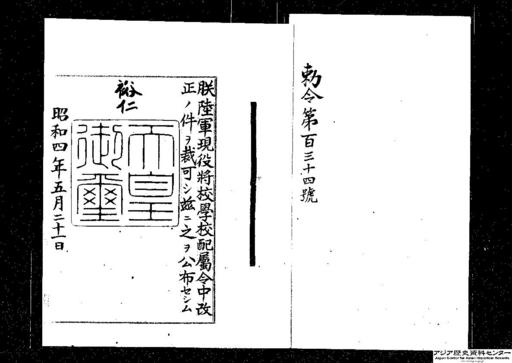 勅令第百三十四號
朕陸軍現役將校學校配屬令中改
正ノ件ヲ裁可シ茲ニ之ヲ公布セシム
裕仁
天皇
御璽
昭和四年五月二十一日
アジア歴史資料センター
Japan Center for Asian Historical Records